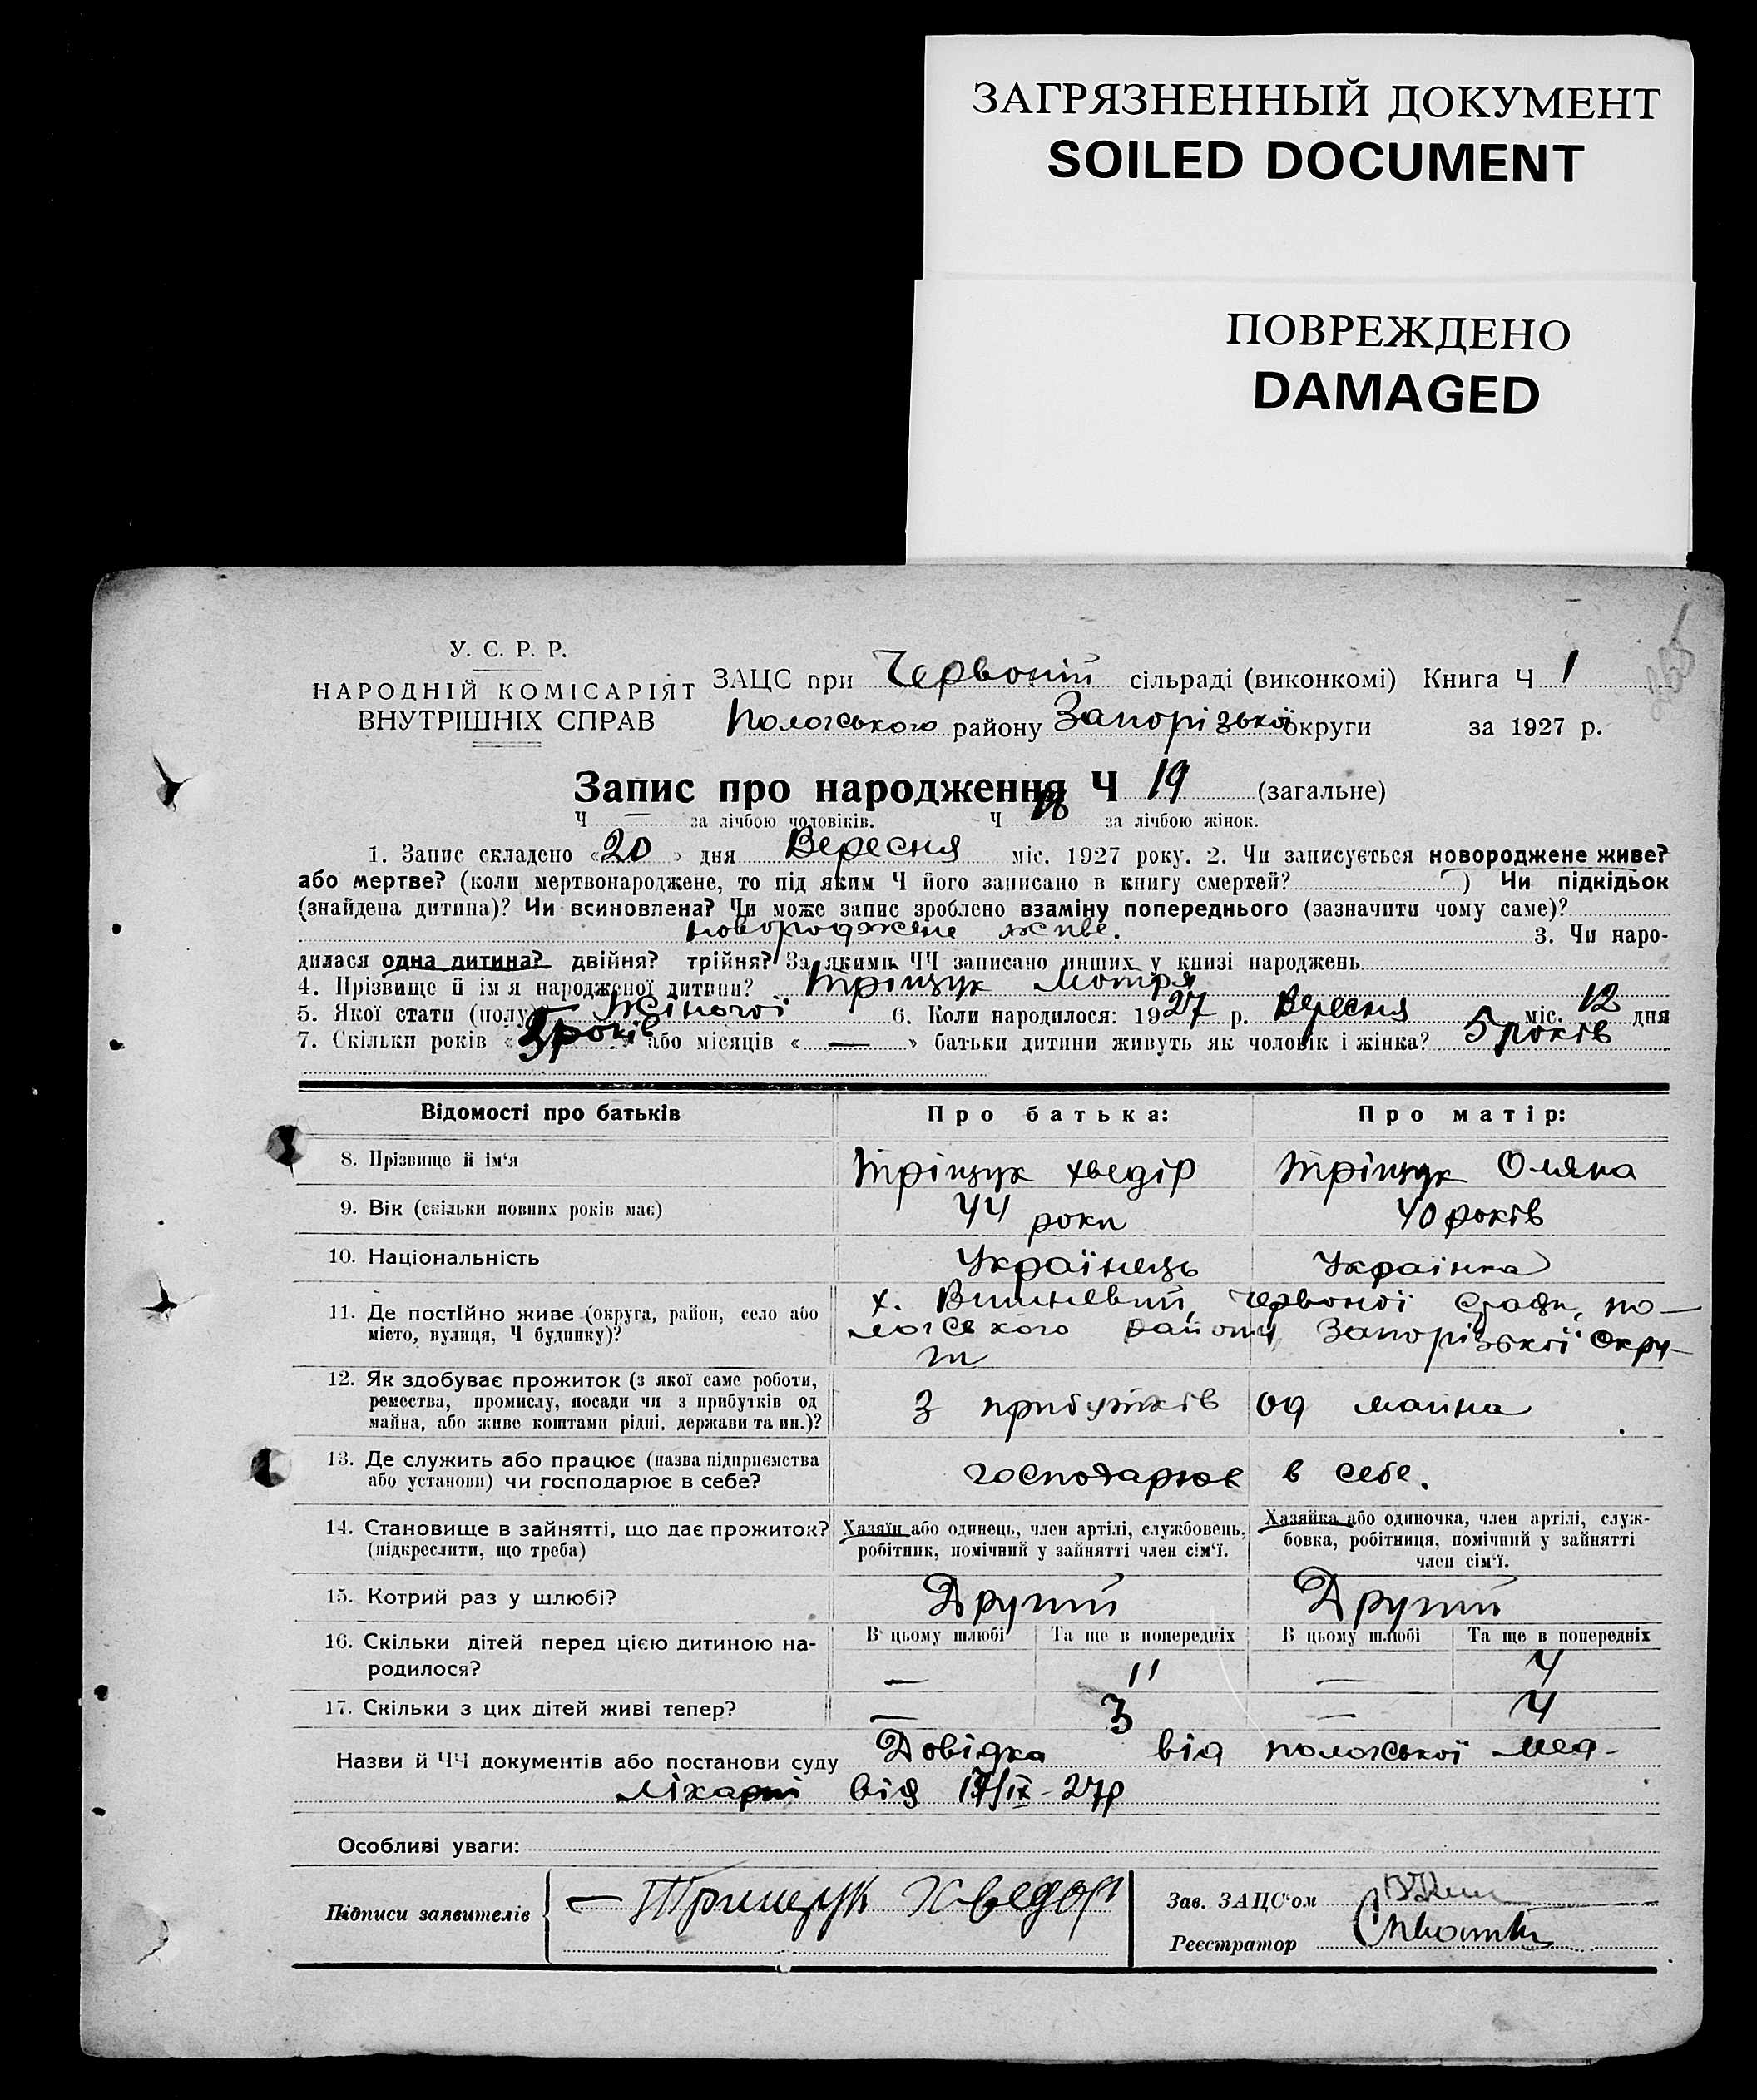 ЗАГРЯЗНЕННЫЙ ДОКУМЕНТ
SOILED DOCUMENT
ПОВРЕЖДЕНО
DAMAGED
У. С. Р. Р.
НАРОДНІЙ КОМІСАРІЯТ
ВНУТРІШНІХ СПРАВ
ЗАЦС при Червоній сільраді (виконкомі) Книга Ч 1
Пологського району Запорізької округи за 1927 р.
Запис про народження Ч 19 (загальне)
Ч — за лічбою чоловіків. Ч за лічбою жінок.
1. Запис складено «20» дня Вересня міс. 1927 року. 2. Чи записується новороджене живе?
або мертве? (коли мертвонароджене, то під яким Ч його записано в книгу смертей? ) Чи підкідьок
(знайдена дитина)? Чи всиновлена? Чи може запис зроблено взаміну попереднього (зазначити чому саме)?
новороджене живе. 3. Чи наро-
дилася одна дитина? двійня? трійня? За якими ЧЧ записано инших у книзі народжень
4. Прізвище й ім'я народженої дитини? Тріщук Мотря
5. Якої статі (полу)? Жіночої 6. Коли народилося: 1927 р. Вересня міс. 12 дня
7. Скільки років «5 років» або місяців « — » батьки дитини живуть як чоловік і жінка? 5 років
Відомості про батьків Про батька: Про матір:
8. Прізвище й ім'я Тріщук Хведір Тріщук Оляна
9. Вік (скільки повних років має) 44 роки 40 років
10. Національність Українець Українка
11. Де постійно живе (округа, район, село або
місто, вулиця, Ч будинку)?
х. Вишневий, Червоної с/ради, по-
логського району, Запорізької окру-
ги
12. Як здобуває прожиток (з якої саме роботи,
ремества, промислу, посади чи з прибутків од
майна, або живе коштами рідні, держави та ин.)?
З прибутків од майна
13. Де служить або працює (назва підприємства
або установи) чи господарює в себе?
господарює в себе.
14. Становище в зайнятті, що дає прожиток?
(підкреслити, що треба)
Хазяїн або одинець, член артілі, службовець,
робітник, помічний у зайнятті член сім'ї.
Хазяйка або одиночка, член артілі, служ-
бовка, робітниця, помічний у зайнятті
член сім'ї.
15. Котрий раз у шлюбі? Другий Другий
16. Скільки дітей перед цією дитиною на-
родилося?
В цьому шлюбі Та ще в попередніх В цьому шлюбі Та ще в попередніх
— 11 — 4
17. Скільки з цих дітей живі тепер? — 3 — 4
Назви й ЧЧ документів або постанови суду Довідка від пологської мед-
лікарні від 17/IX-27р
Особливі уваги:
Підписи заявителів — Трищук Хведор
Зав. ЗАЦС'ом
Реєстратор